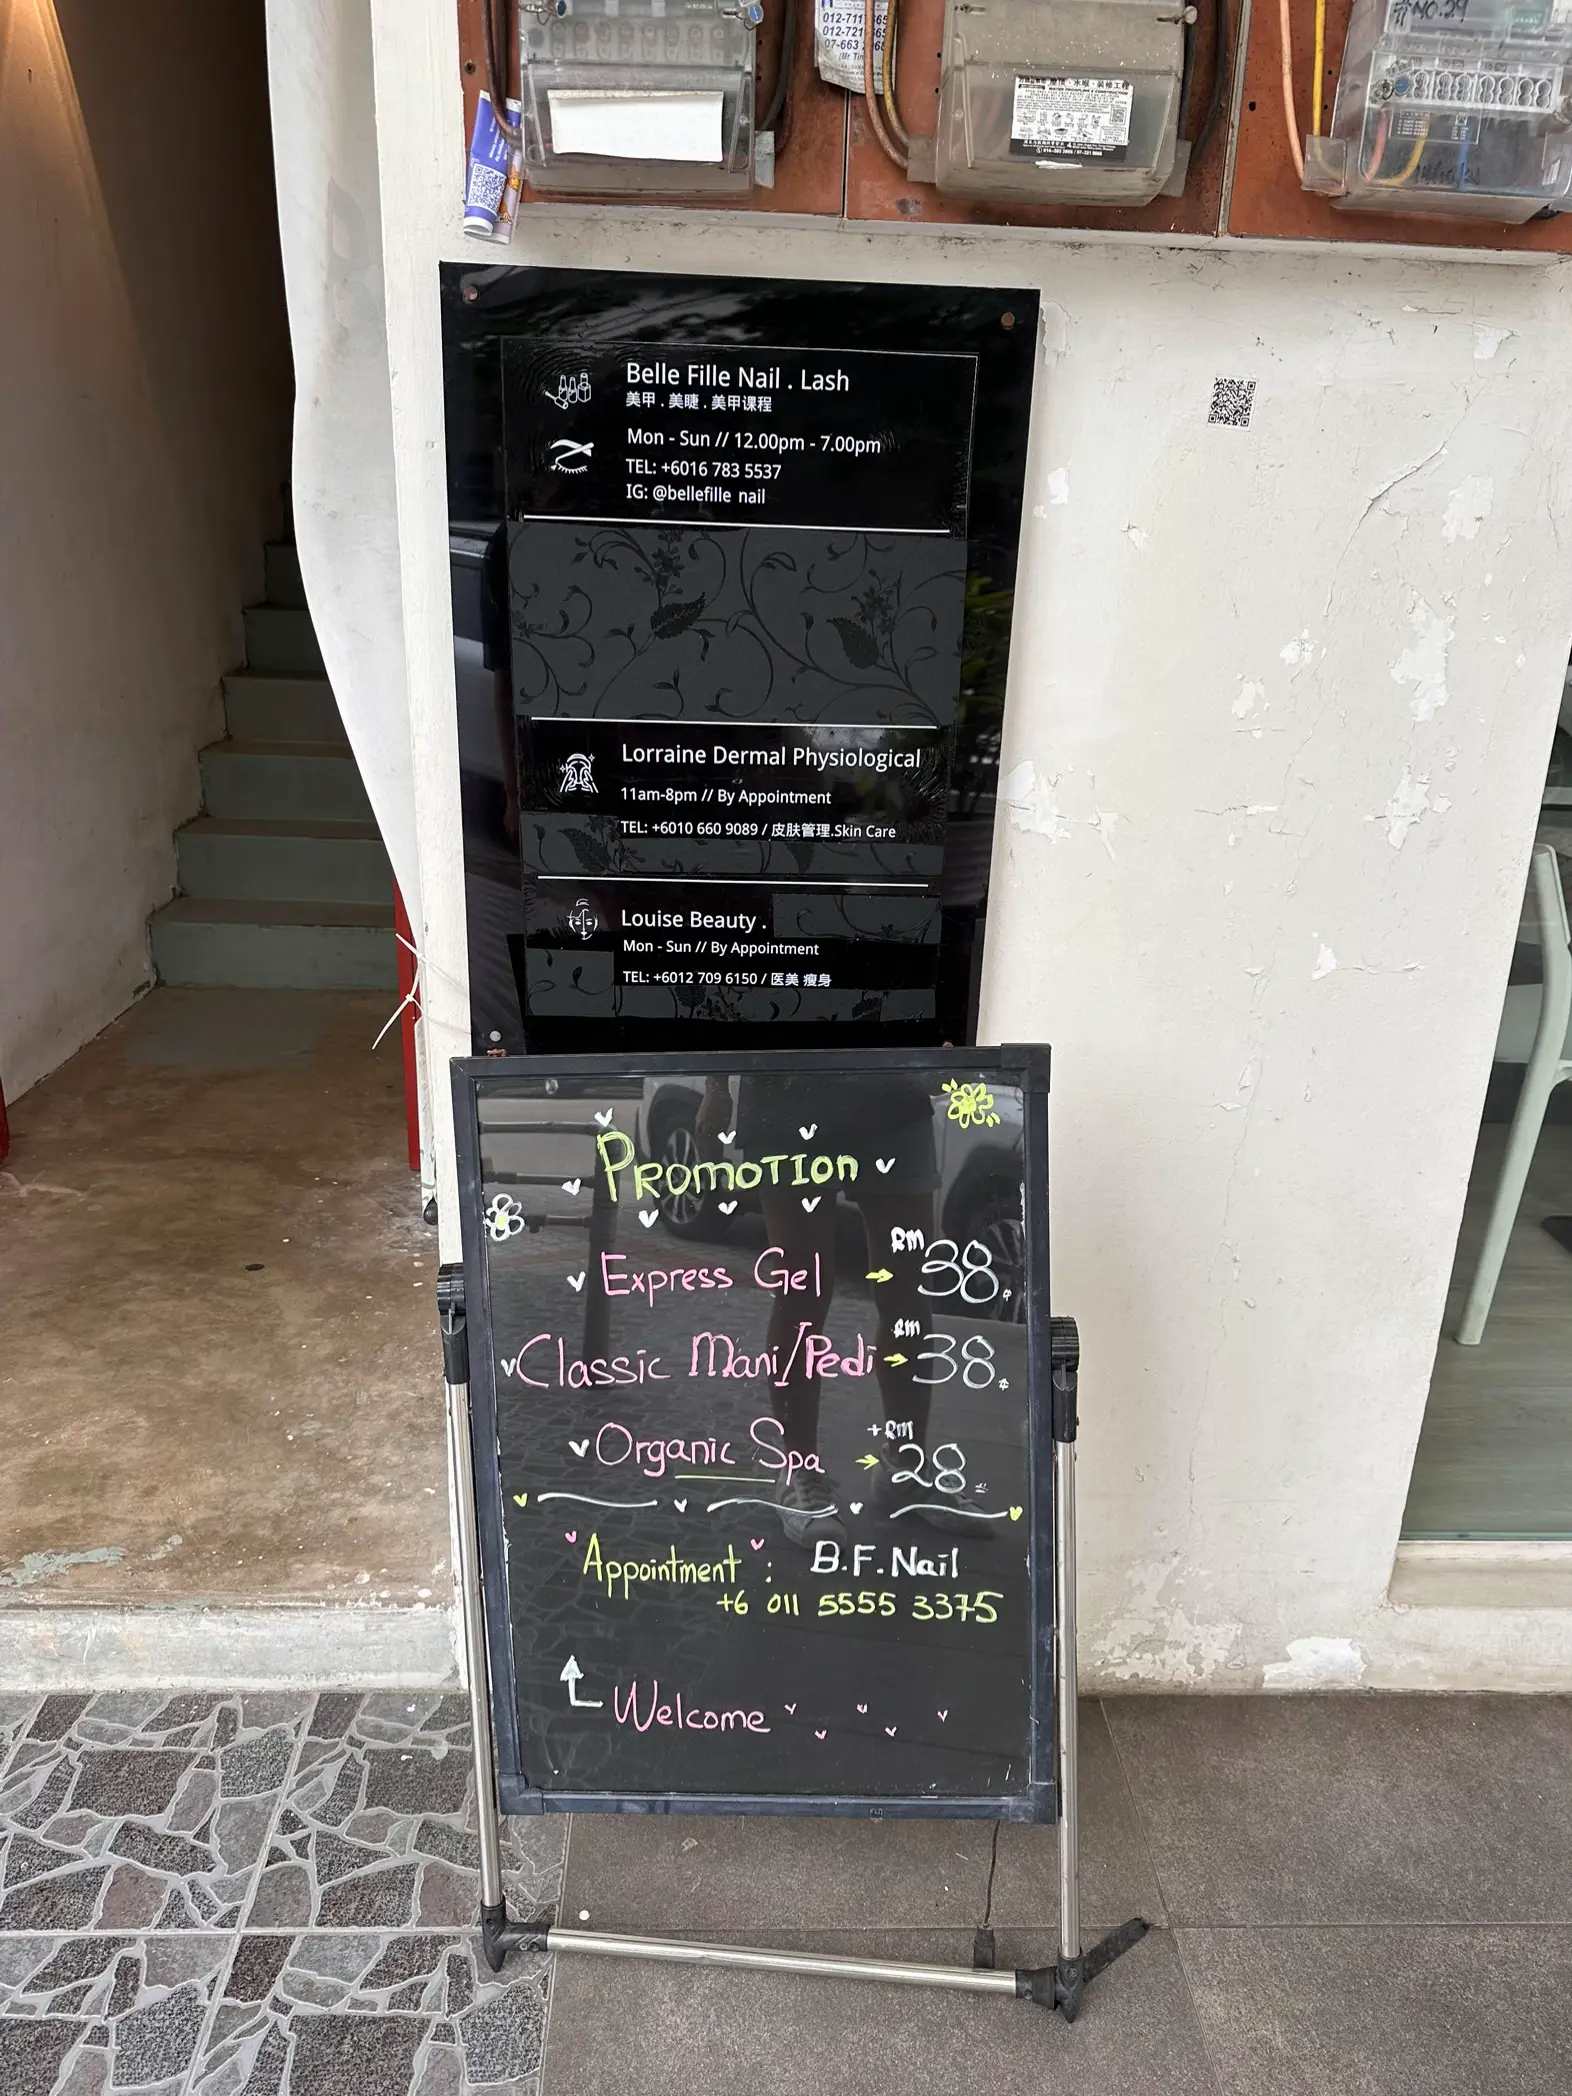 012-711
012-721
07-663
(Mr. Tin
#NO.29
Belle Fille Nail . Lash
美甲 . 美睫 . 美甲课程
Mon - Sun // 12.00pm - 7.00pm
TEL: +6016 783 5537
IG: @bellefille nail
Lorraine Dermal Physiological
11am-8pm // By Appointment
TEL: +6010 660 9089 / 皮肤管理.Skin Care
Louise Beauty .
Mon - Sun // By Appointment
TEL: +6012 709 6150 / 医美 瘦身
PROMOTION
Express Gel → RM 38
Classic Mani/Pedi → RM 38
Organic Spa → +RM 28
Appointment : B.F. Nail
+6 011 5555 3375
Welcome